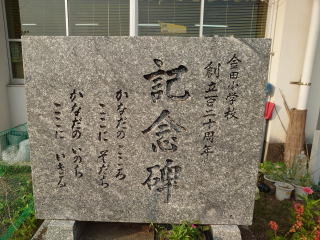 金田小学校
創立百二十周年
記念碑
かなだの こころ
ここに そだち
かなだの いのち
ここに いきる